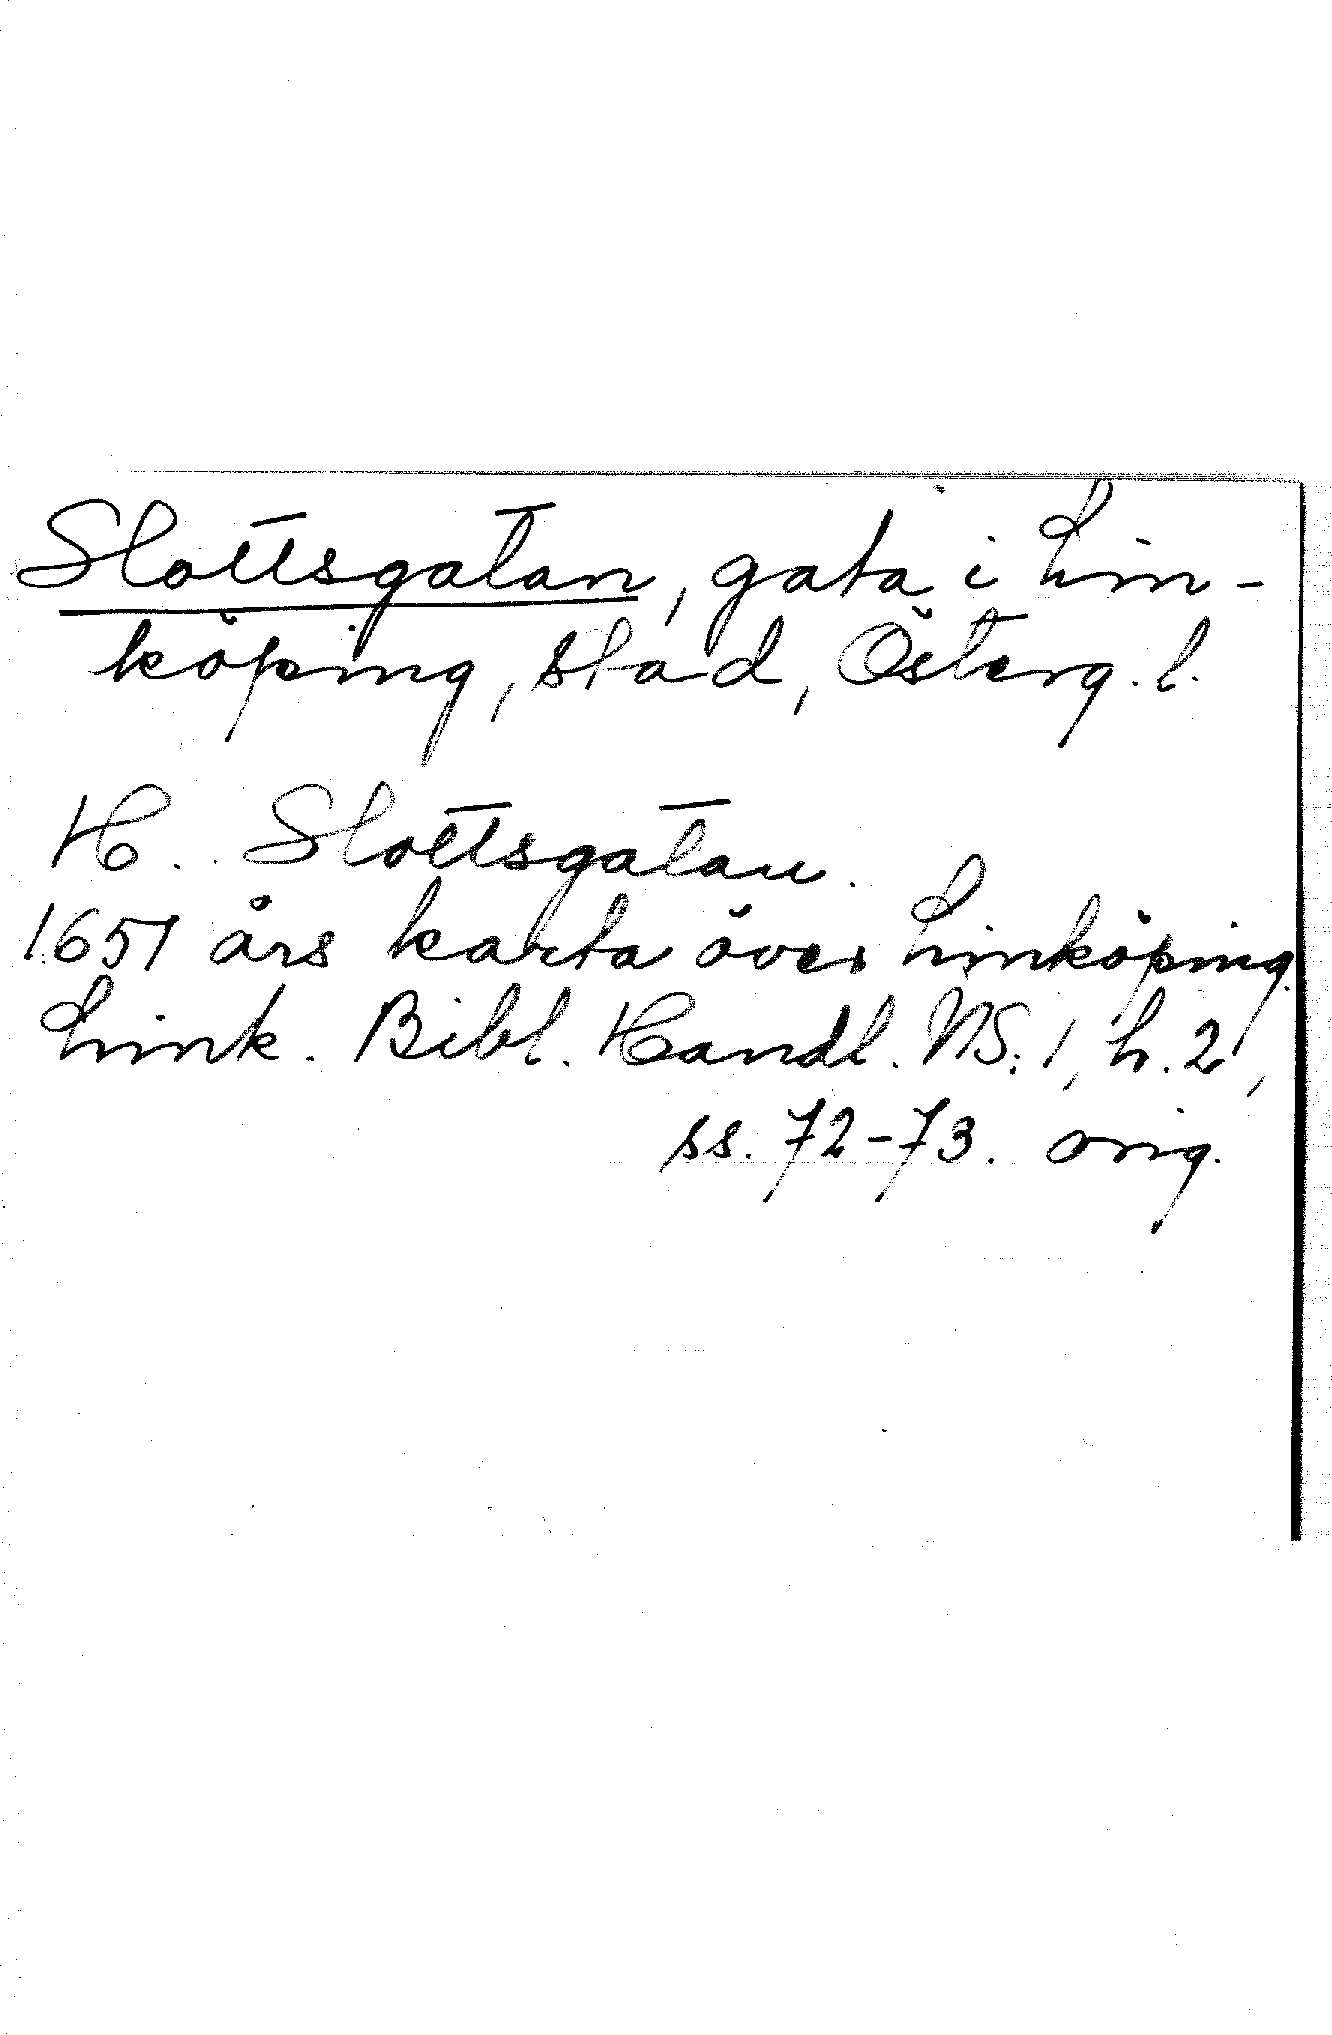 Slottsgatan, gata i Lin-
köping, stad, Österg. l.
H. Slottsgatan.
1651 års karta över Linköping.
Link. Bibl. Handl. NS: 1, h. 2,
ss. 72-73. orig.